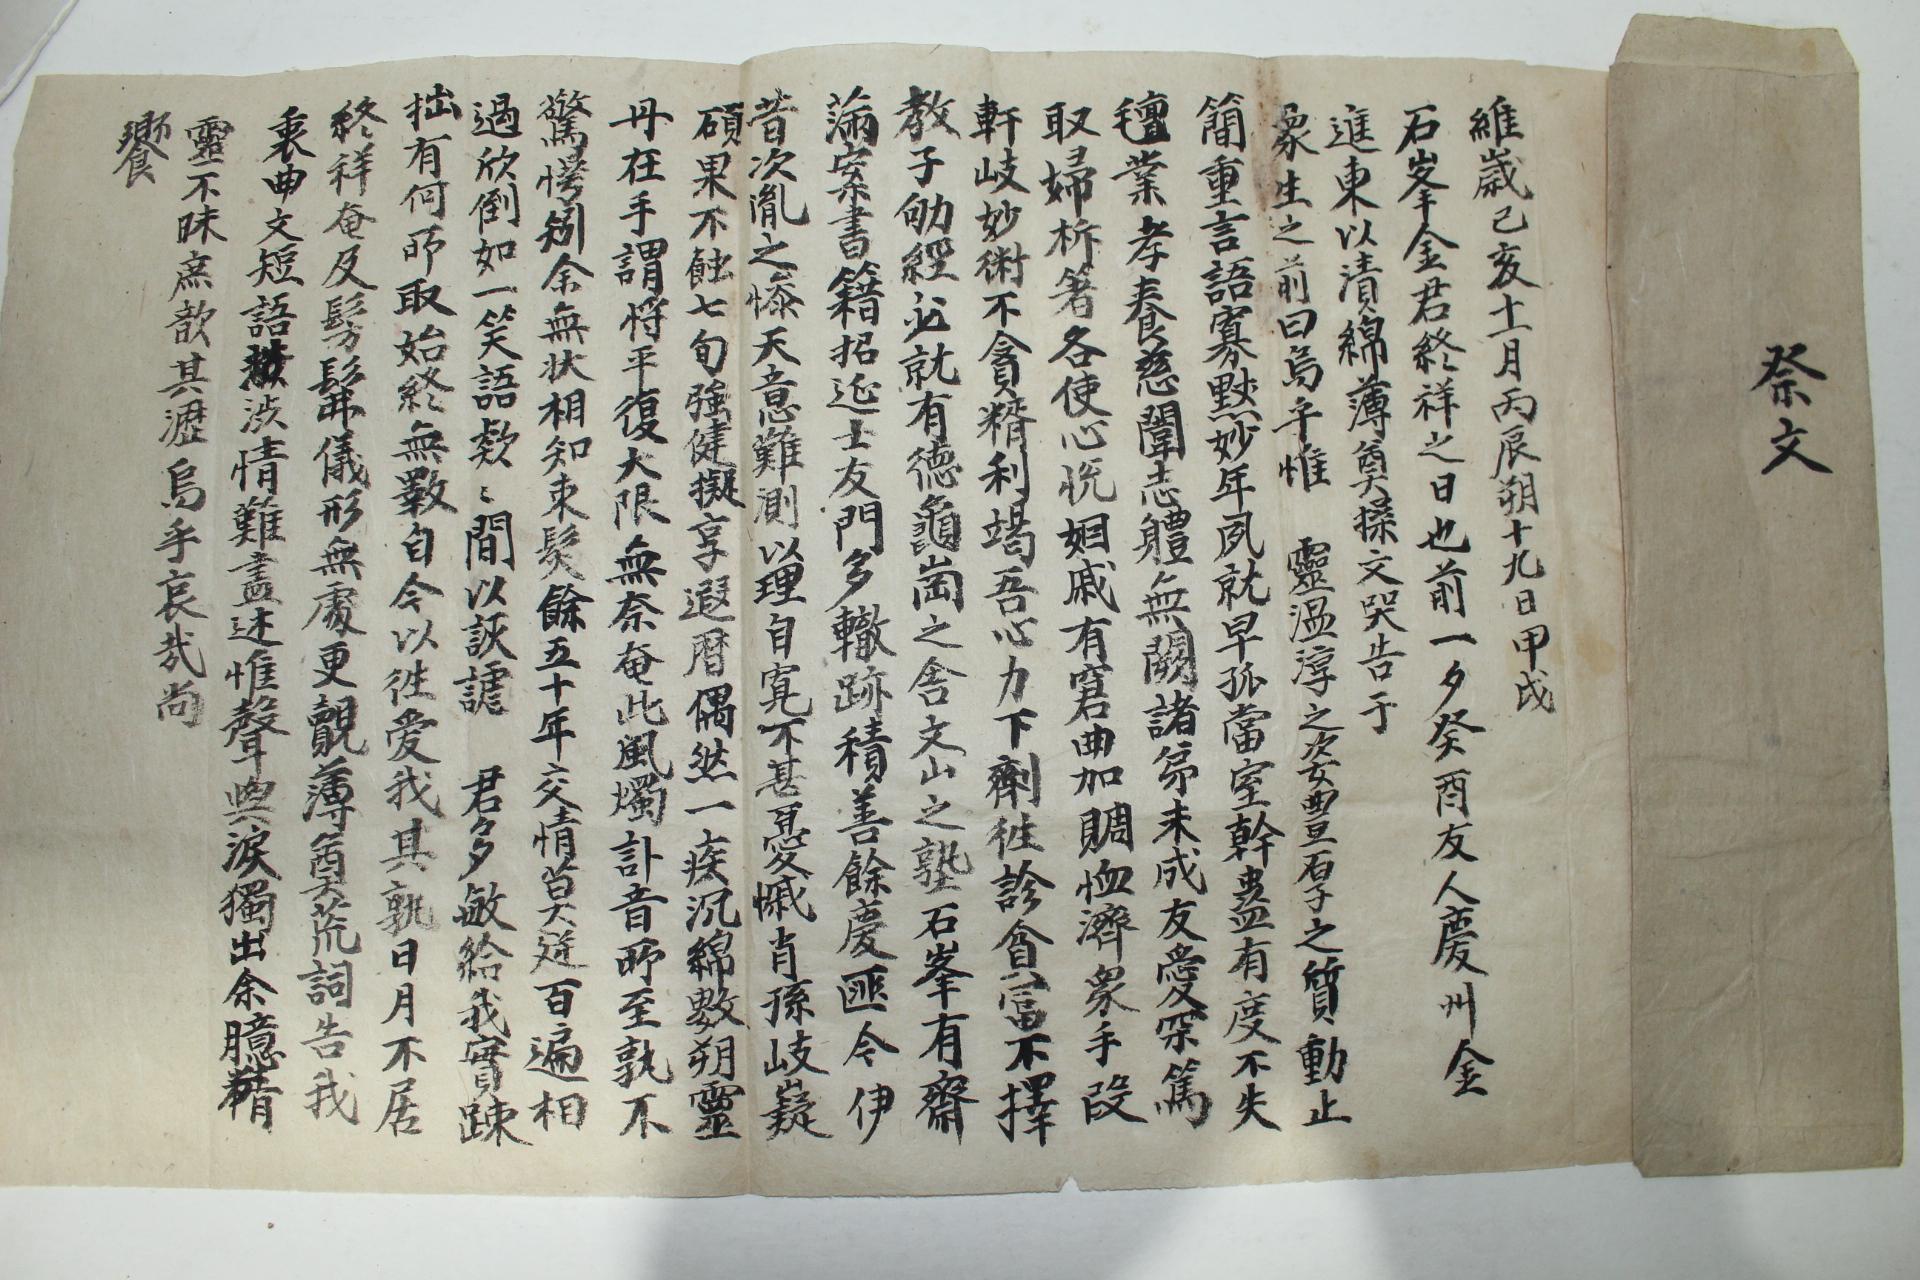 祭文
維歲己亥十一月丙辰朔十九日甲戌
石峯金君終祥之日也前一夕癸酉友人慶州金
進東以漬綿薄奠操文哭告于
象生之前曰烏乎惟 靈溫淳之姿豐碩之質動止
簡重言語寡默妙年夙就早孤當室幹蠱有度不失
氈業孝養慈闈志軆無闕諸弟未成友愛罙篤
取婦析箸各使心悅姻戚有窘曲加賙恤濟衆手段
軒岐妙術不貪糈利竭吾心力下劑往診貧富不擇
敎子劬經必就有德龜崗之舍文山之塾石峯有齋
滿案書籍招延士友門多轍跡積善餘慶匪今伊
昔次胤之慘天意難測以理自寬不甚憂慽肖孫岐嶷
碩果不蝕七旬强健擬享遐曆偶然一疾沉綿數朔靈
丹在手謂將平復大限無奈奄此風燭訃音所至孰不
驚愕矧余無狀相知束髮餘五十年交情莫逆百遍相
過欣倒如一笑語欵〻間以詼謔 君多敏給我實踈
拙有何所取始終無斁自今以徃愛我其孰日月不居
終祥奄及髣髴儀形無處更覿薄奠荒詞告我
衷曲文短語澁情難盡述惟聲與淚獨出余臆精
靈不昧庶歆其瀝烏乎哀哉尙
饗